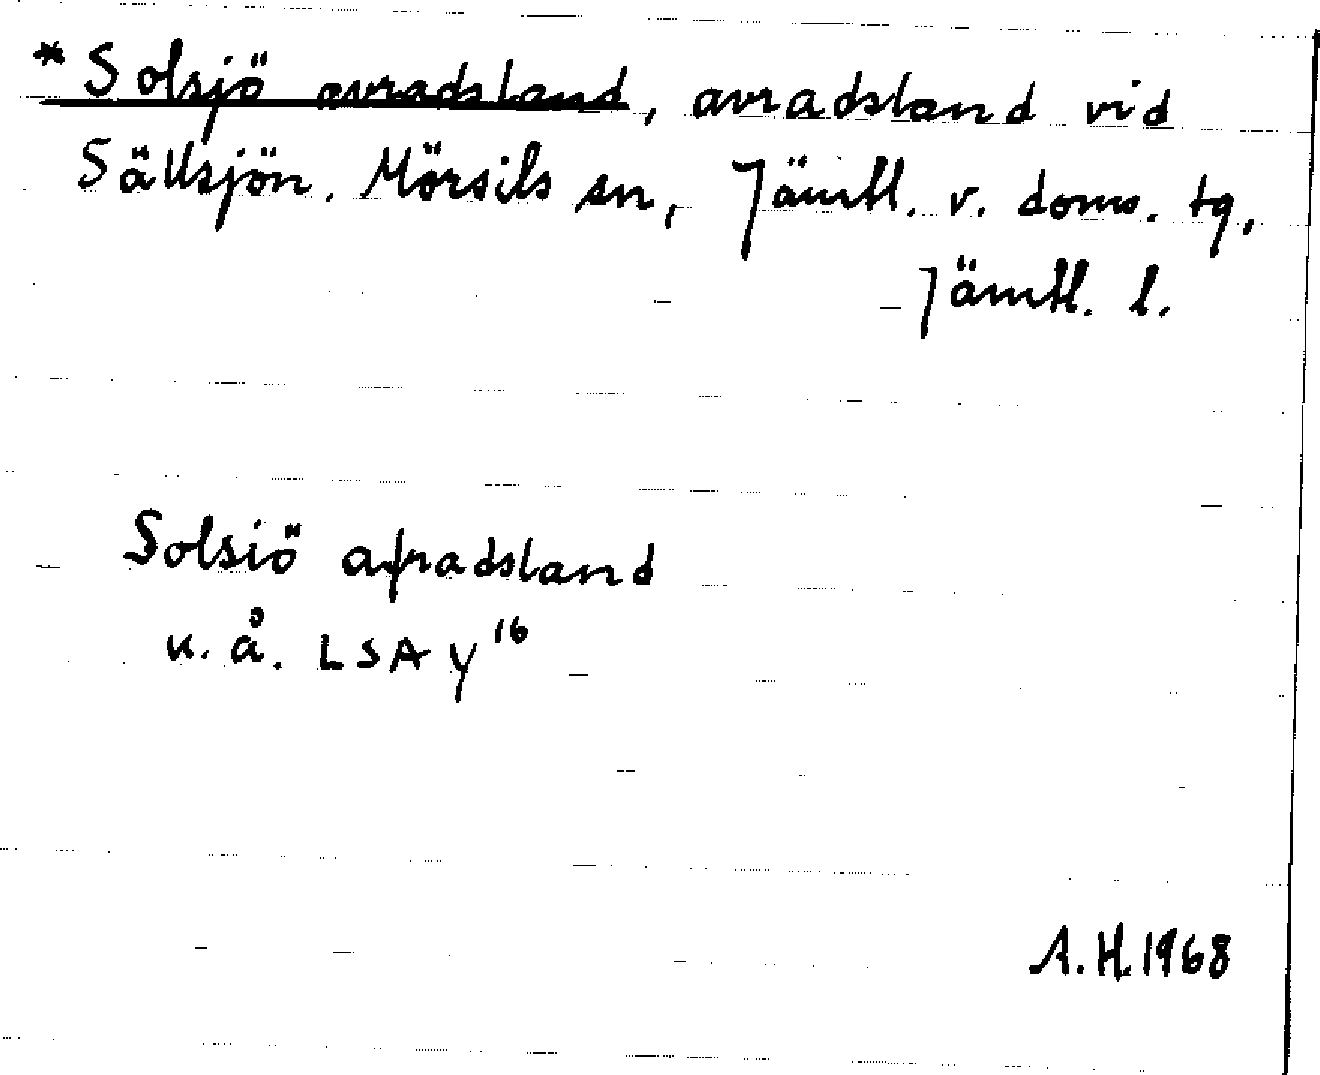 * Solsjö avradsland, avradsland vid
Sällsjön. Mörsils sn, Jämtl. v. doms. tg,
Jämtl. l.
Solsiö afradsland
u. å. LSA Y¹⁶
A.H. 1968